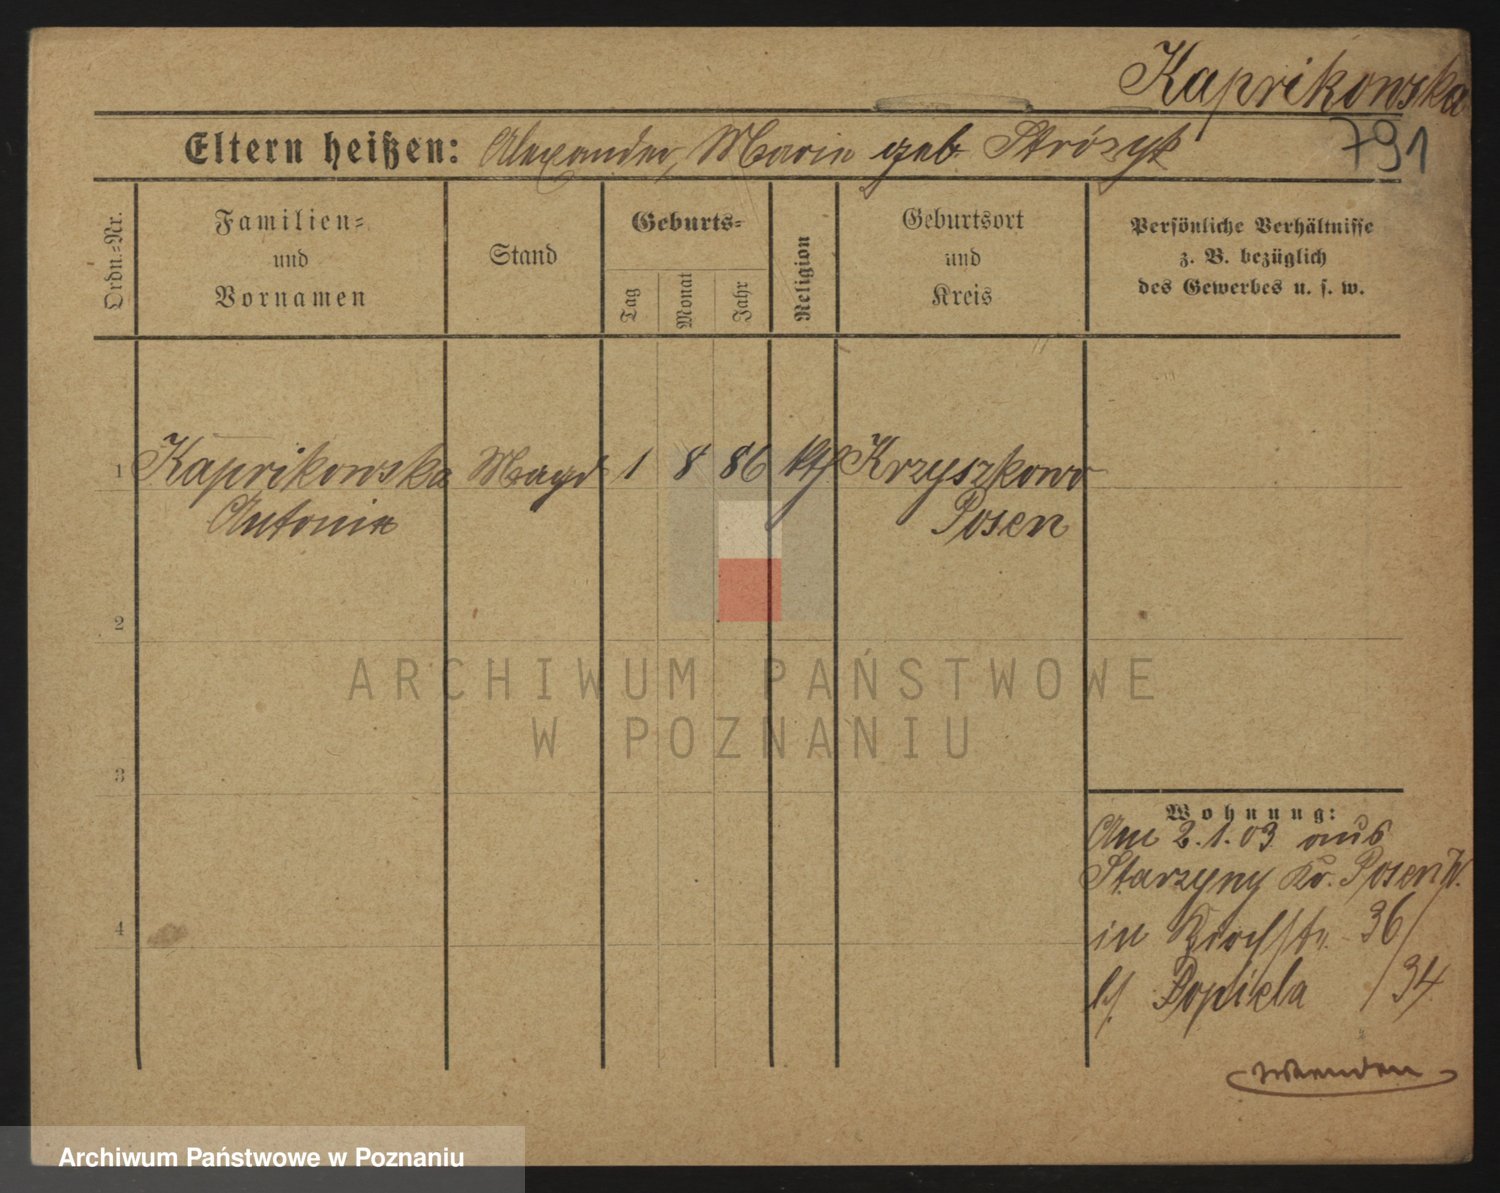 Kaprikowska
791
Eltern heißen: Alexander, Marie geb Stróżyk
Ordn.-Nr.
Familien-
und
Vornamen
Stand
Geburts-
Tag
Monat
Jahr
Religion
Geburtsort
und
Kreis
Persönliche Verhältnisse
z. B. bezüglich
des Gewerbes u. s. w.
1 Kaprikowska Magd 1 8 86 kth Krzyszkowo
Antonie Posen
2
ARCHIWUM PAŃSTWOWE
W POZNANIU
3
Wohnung:
Am 2.1.03 aus
Starzyny Kr. Posen W.
4
in 36/
b/ Popiela /34
wenden
Archiwum Państwowe w Poznaniu